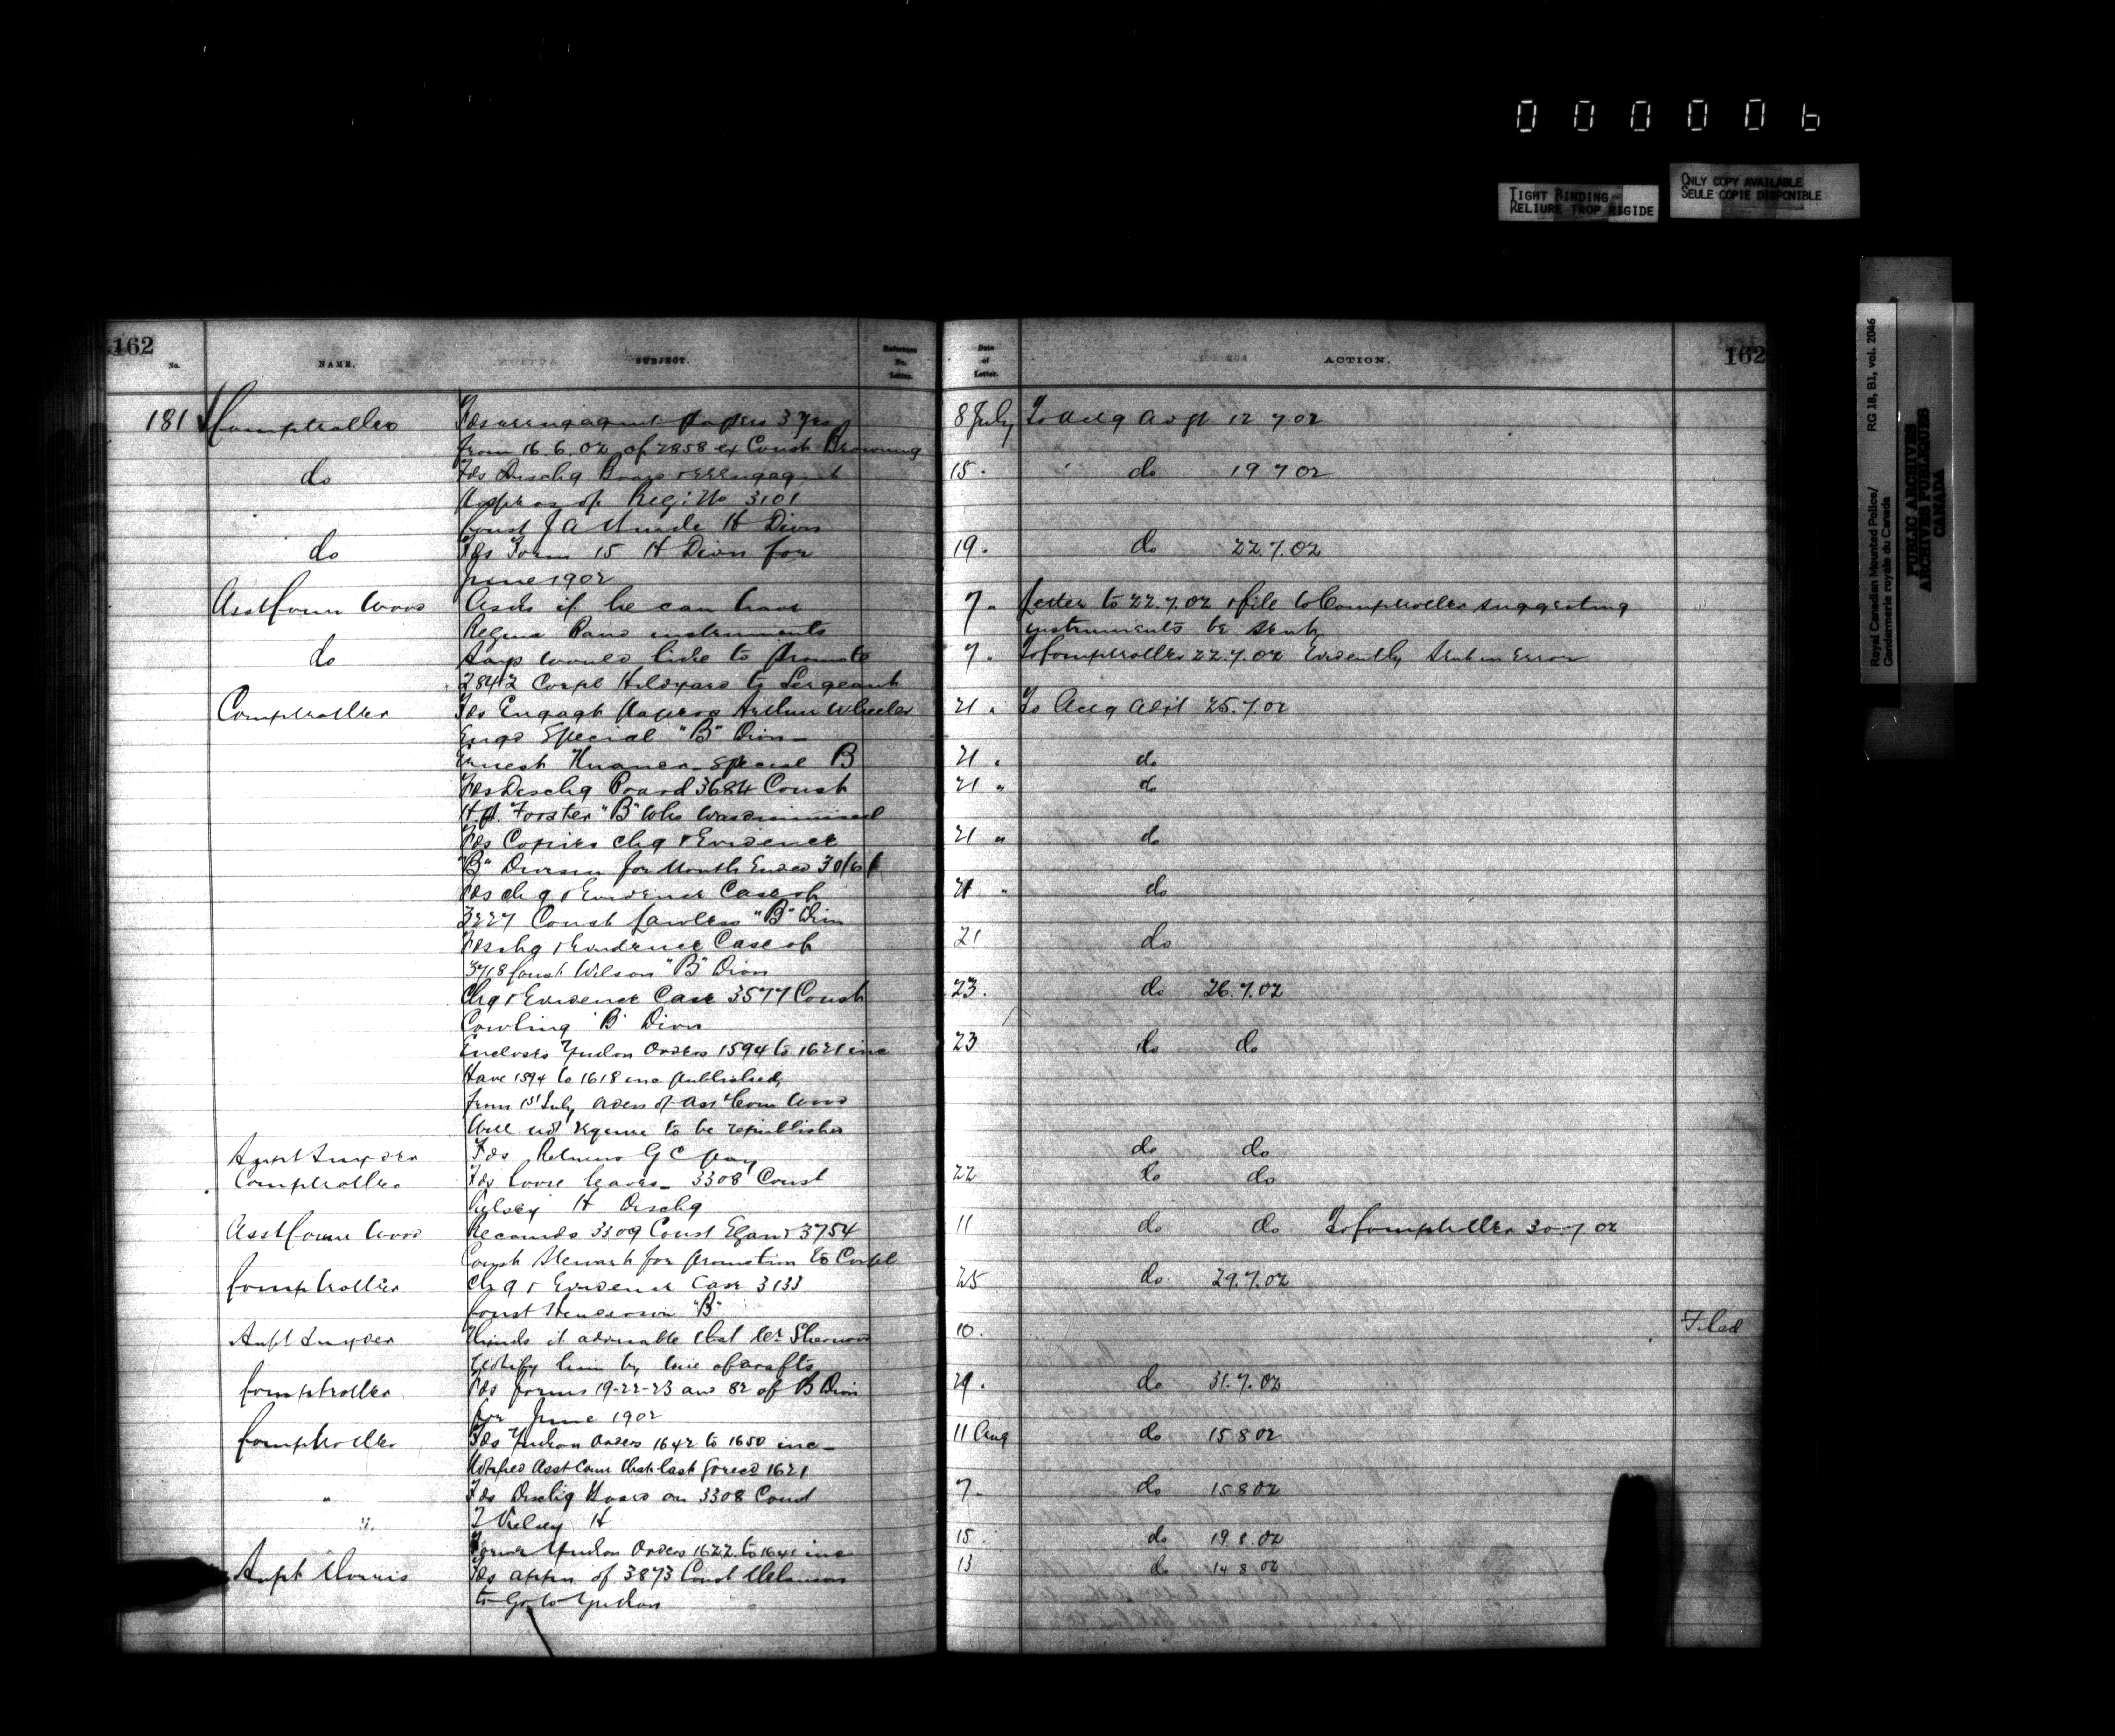 000006
TIGHT BINDING
RELIURE TROP RIGIDE
ONLY COPY AVAILABLE
SEULE COPIE DISPONIBLE
Royal Canadian Mounted Police/ RG 18, B1, vol. 2046
Gendarmerie royale du Canada
PUBLIC ARCHIVES
ARCHIVES PUBLIQUES
CANADA
162 162
No. NAME. SUBJECT. Reference No. Letter. Date of Letter. ACTION.
181 Comptroller Fds reengagmt papers 3 yrs 8 July To actg 12 7 02
from 16.6.02 of 2858 ex Const Browning
do Fds Dischg Board & reengagmt 15. do 19 7 02
papers of Regt No 3101
Const J A H Divn
do Fds Form 15 H Divn for 19. do 22.7.02
June 1902
Asst Comm Wood Asks if he can have 7. Letter to 22.7.02 & file to Comptroller suggesting
Regina Band instruments instruments be sent
do Says would like to promote 7. To Comptroller 22.7.02 Evidently sent in Error
2842 Corpl Hildyard to Sergeant
Comptroller Fds Engagt papers Arthur Wheeler 21. To 25.7.02
Engd Special "B" Divn
Ernest Special B 21. do
Fds Dischg Board 3684 Const 21 " do
Forster "B" who was dismissed
Fds Copies chg & Evidence 21 " do
"B" Division for Month Ended 30/6/
Fds chg & Evidence Case of 21 " do
3227 Const Lawless "B" Divn
Fds chg & Evidence Case of 21 do
3718 Const Wilson "B" Divn
Chg & Evidence Case 3577 Const 23. do 26.7.02
Cowling "B" Divn
Encloses Yukon Orders 1594 to 1621 inc 23 do do
Have 1594 to 1618 inc published,
from 1st July orders of Asst Com Wood
Will not require to be republished
Supt Snyder Fds Returns G C pay do do
Comptroller Fds loose leaves 3308 Const 22 do do
H Dischg
Asst Comm Wood Recomds 3309 Const Egan & 3754 11 do do To Comptroller 30.7.02
Const Stewart for promotion to Corpl
Comptroller Chg & Evidence Case 3133 25 do 29.7.02
Const Henderson "B"
Supt Snyder Thinks it advisable that Mr Sherwood 10. Filed
notify him by wire of drafts
Comptroller Fds forms 19-22-23 and 82 of B Divn 29. do 31.7.02
for June 1902
Comptroller Fds Yukon Orders 1642 to 1650 inc 11 Aug do 15 8 02
Notified Asst Com that last forwd 1621
" Fds Dischg Board on 3308 Const 7. do 15 8 02
H
" Forwd Yukon Orders 1622 to 1641 inc 15 do 19.8.02
Supt Morris Fds appn of 3873 Const 13 do 14 8 02
to go to Yukon